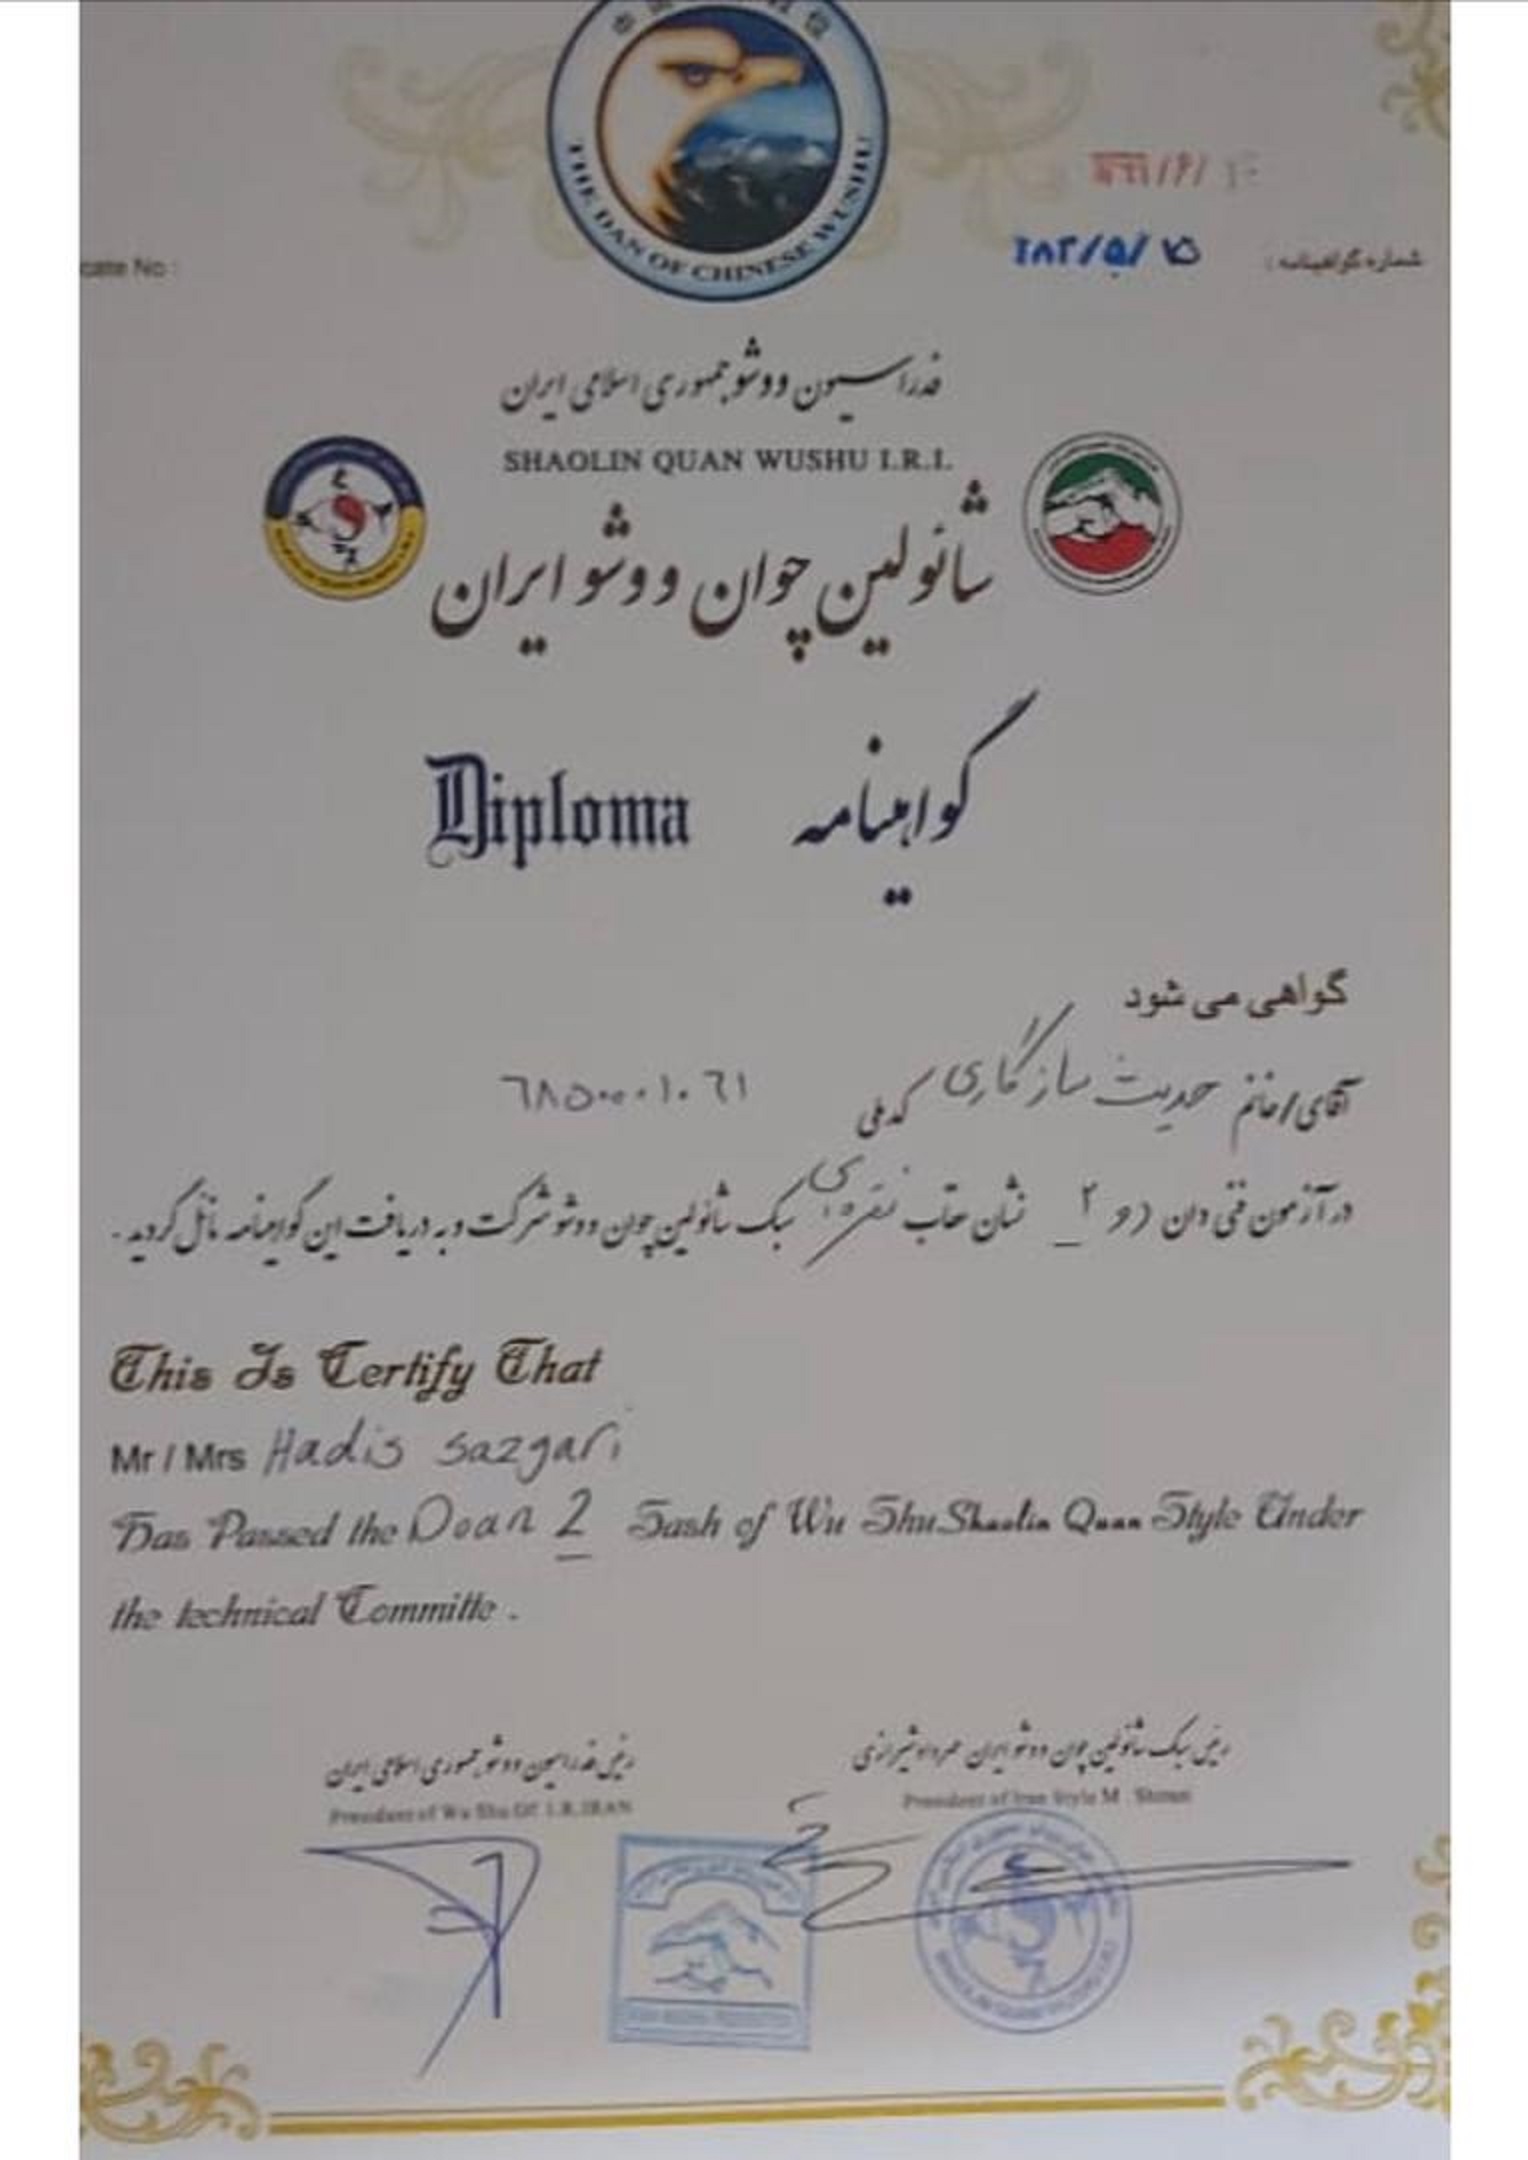 THE DAN OF CHINESE WUSHU
شماره گواهینامه :
cate No :
فدراسیون ووشو جمهوری اسلامی ایران
SHAOLIN QUAN WUSHU I.R.I.
شائولین چوان ووشو ایران
Diploma گواهینامه
گواهی می شود
آقای/خانم حدیث سازگاری کدملی
در آزمون فنی دان دو ۲ نشان عقاب نقره‌ای سبک شائولین چوان ووشو شرکت و به دریافت این گواهینامه نائل گردید.
This Is Certify That
Mr / Mrs Hadis sazgari
Has Passed the Doan 2 Sash of Wu Shu Shaolin Quan Style Under
the technical Committe .
رئیس سبک شائولین چوان ووشو ایران
President of Iran Style M .
رئیس فدراسیون ووشو جمهوری اسلامی ایران
President of Wu Shu Of I.R.IRAN